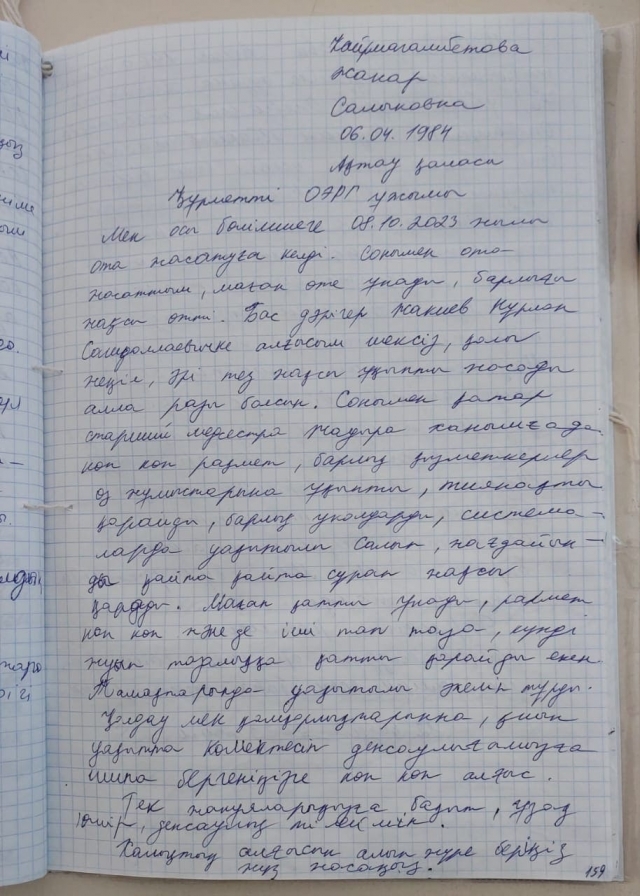 Каирмагамбетова
Жанар
Салыковна
06.04.1984
Ақтау қаласы
Құрметті ОЭРГ ұжымы
Мен осы бөлімшеге 08.10.2023 жылы
ота жасатуға келді. Сонымен ота
жасаттым, маған өте ұнады, барлығы
жақсы өтті. Бас дәрігер Жакиев Нұрлан
алғысым шексіз, қолы
жеңіл, әрі тез жақсы ұқыпты жасады
алла разы болсын. Сонымен қатар
старший медсестра Жадыра ханымғада
көп көп рахмет, барлық қызметкерлер
өз жұмыстарына ұқыпты, тиянақты
қарайды, барлық уколдарды, система-
ларда уақытылы салып, жағдайын-
ды қайта қайта сұрап жақсы
қарады. Маған қатты ұнады, рахмет
көп көп және де іші тап таза, күнді
жуып тазалыққа қатты қарайды екен
Тамақтарында уақытылы әкеліп тұрды.
Қолдау мен қамқорлықтарыңна, қиын
уақытта көмектесіп денсаулығымызға
шипа бергеніңізге көп көп алғыс.
Тек жанұяларыңызға бақыт, ұзақ
өмір, денсаулық тілеймін.
Халықтың алғысын алып жүре беріңіз
жүз жасаңыз.
159